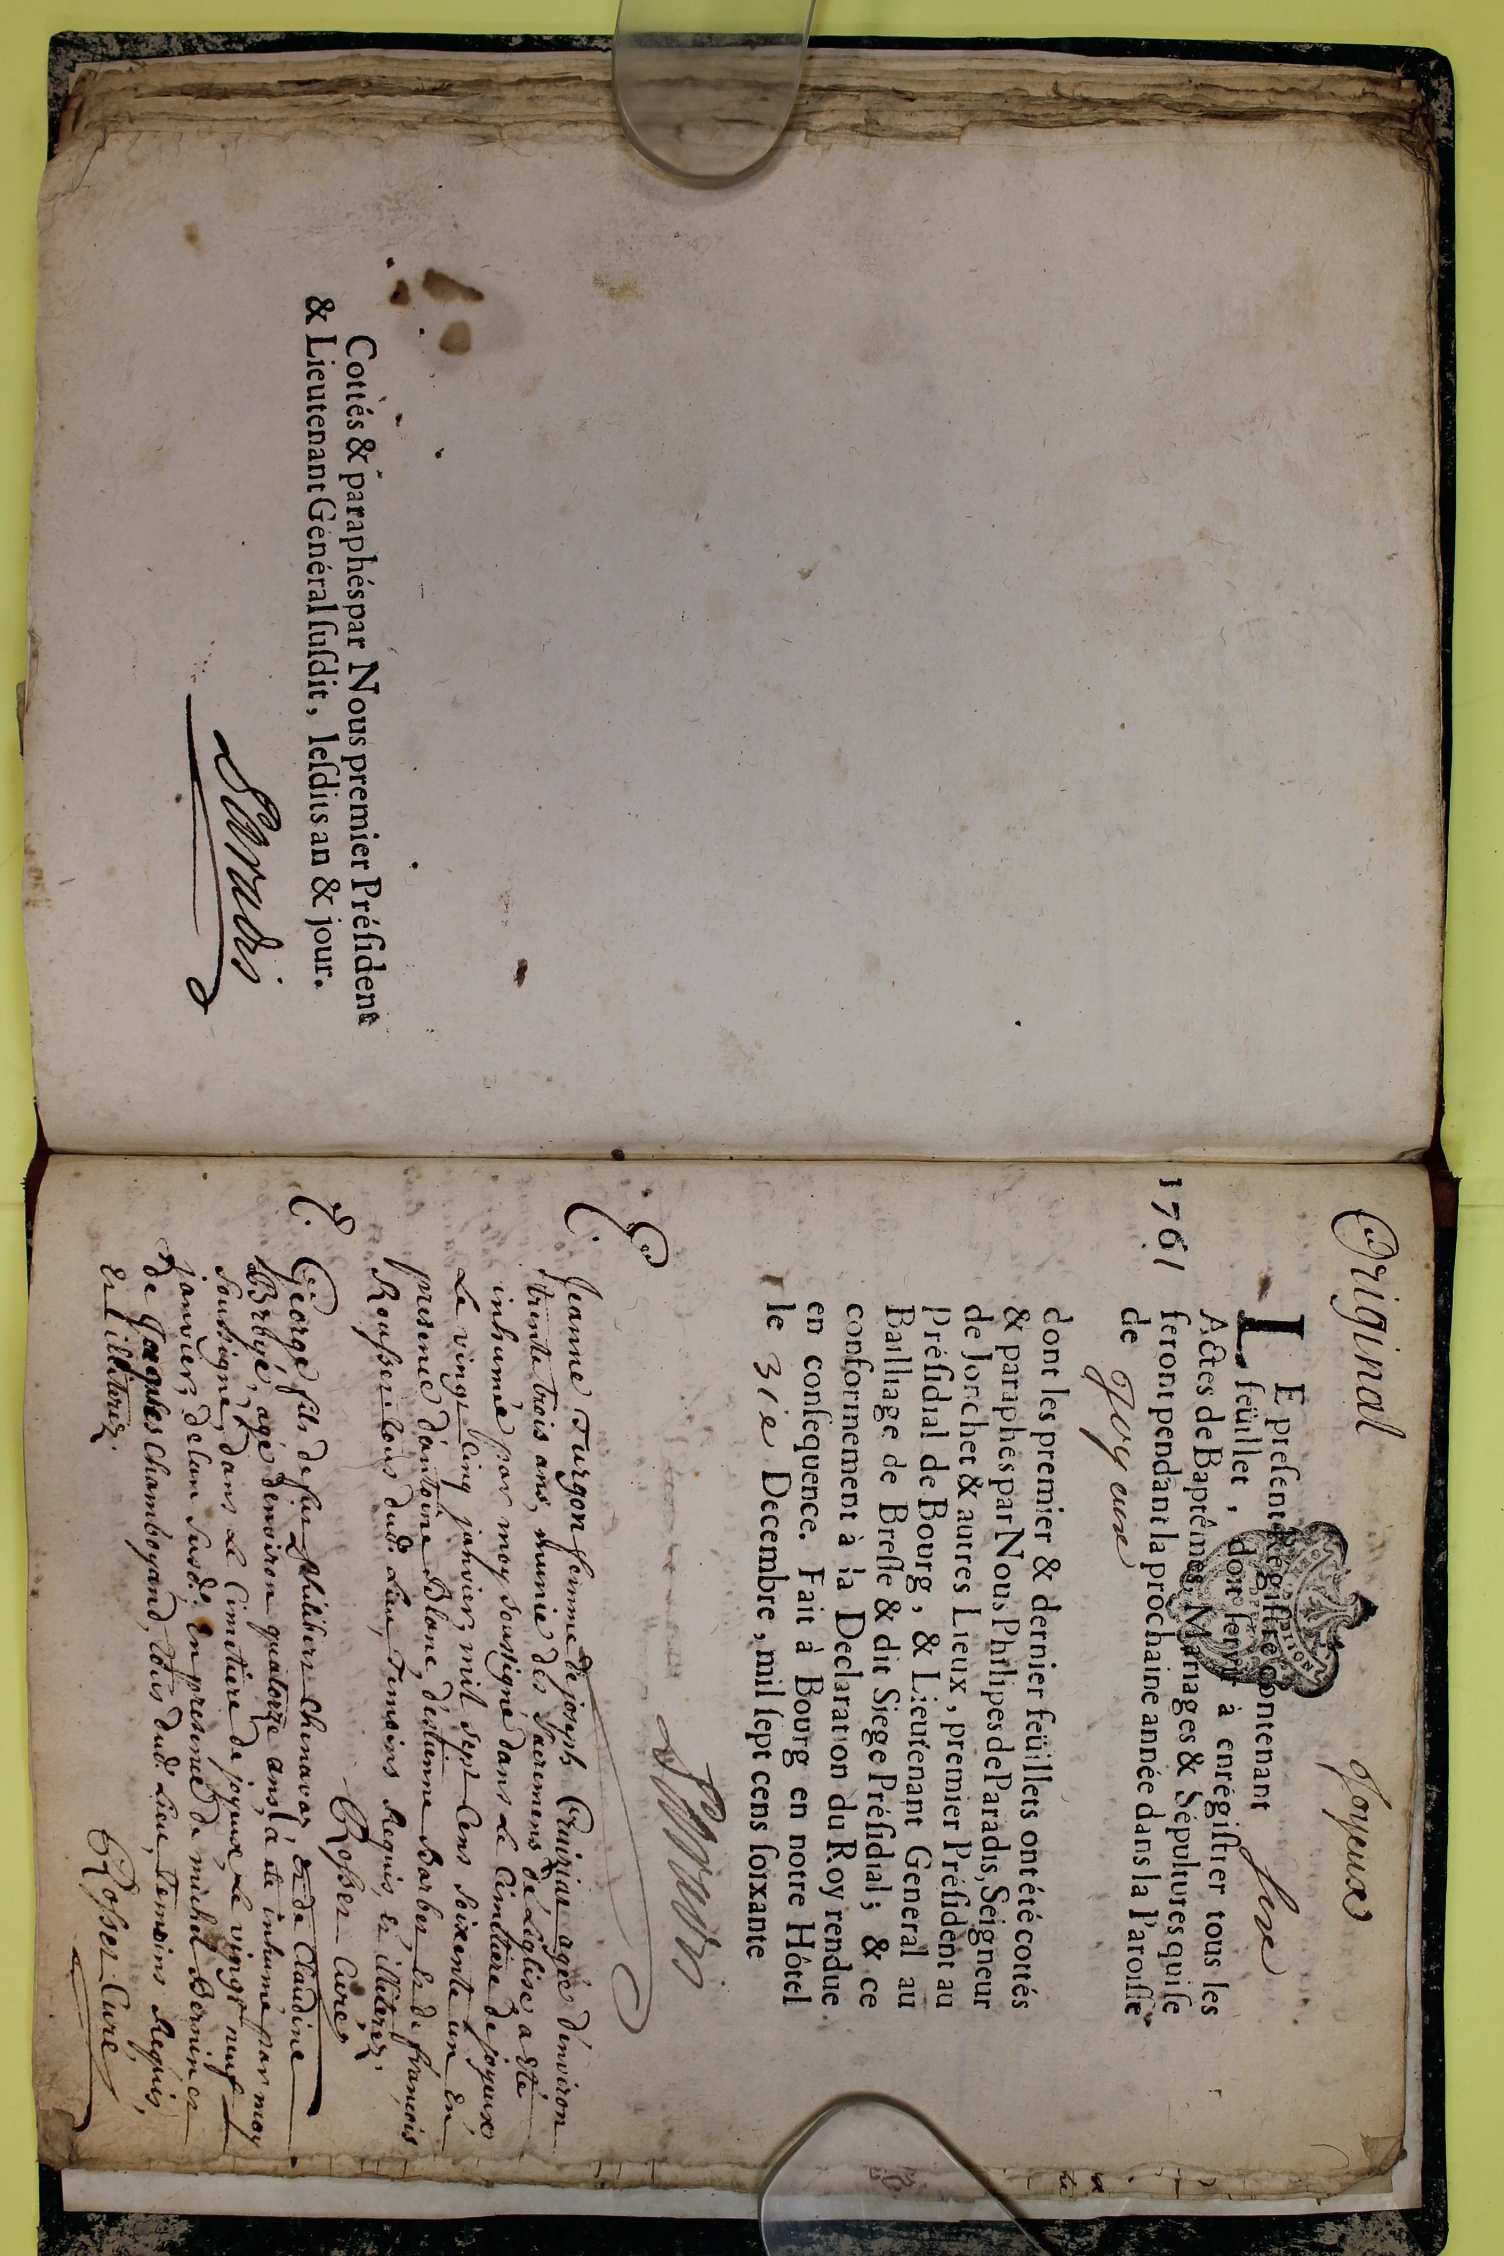 Cottés & paraphés par Nous premier Préſident
& Lieutenant Général ſuſdit, leſdits an & jour.
Paradis
Original Joyeux
1761
LE preſent Regiſtre contenant ſix
feüillet, dont ſervir à enrégiſtrer tous les
Actes de Baptêmes, Mariages & Sépultures qui ſe
feront pendant la prochaine année dans la Paroiſſe
de Joyeux
dont les premier & dernier feüillets ont été cottés
& paraphés par Nous Philipes de Paradis, Seigneur
de Jonchet & autres Lieux, premier Préſident au
Préſidial de Bourg, & Lieutenant General au
Bailliage de Breſſe & dit Siege Préſidial; & ce
conformement à la Declaration du Roy rendue
en conſequence. Fait à Bourg en notre Hôtel
le 31e Decembre, mil ſept cens ſoixante
Paradis
Jeanne Turgon femme de joseph Cuiziat agée d'environ
trente trois ans, munie des Sacremens de L'eglise a été
inhumée par moy soussigné dans Le Cimetiere de joyeux
Le vingt cinq janvier mil sept Cens Soixante un En
presence d'antoine Blanc, d'estienne Barbet & de françois
Rousset tous dud. Lieu, Temoins Requis, et illiterez.
Rosset Curé
George fils de feu philibert Chenavaz, & de Claudine
Brbyé, agé d'environ quatorze ans, a été inhumé par moy
soussigné, dans Le Cimetiere de joyeux, Le vingt neuf
janvier, de L'an susd. En presence de michel Bernin et
de Jacques Chamboyand, tous dud. Lieu, Temoins Requis,
et illiterez.
Rosset Curé